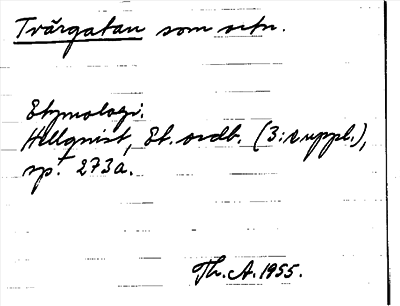 Tvärgatan som ortn.
Etymologi.
Hellquist, Et. ordb. (3:e uppl.),
sp. 273a.
Th. A. 1955.